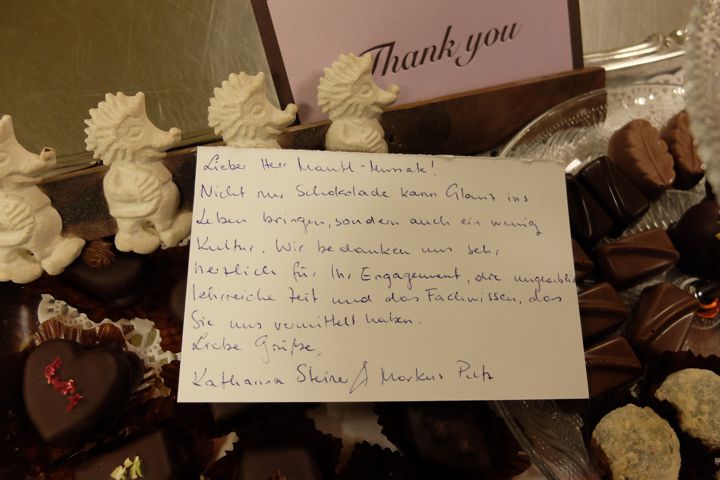 Thank you
Lieber Herr Mantl-Mussak!
Nicht nur Schokolade kann Glanz ins
Leben bringen, sondern auch ein wenig
Kultur. Wir bedanken uns sehr
herzlich für Ihr Engagement, die unglaublich
lehrreiche Zeit und das Fachwissen, das
Sie uns vermittelt haben.
Liebe Grüße,
Katharina Steiner & Markus Putz